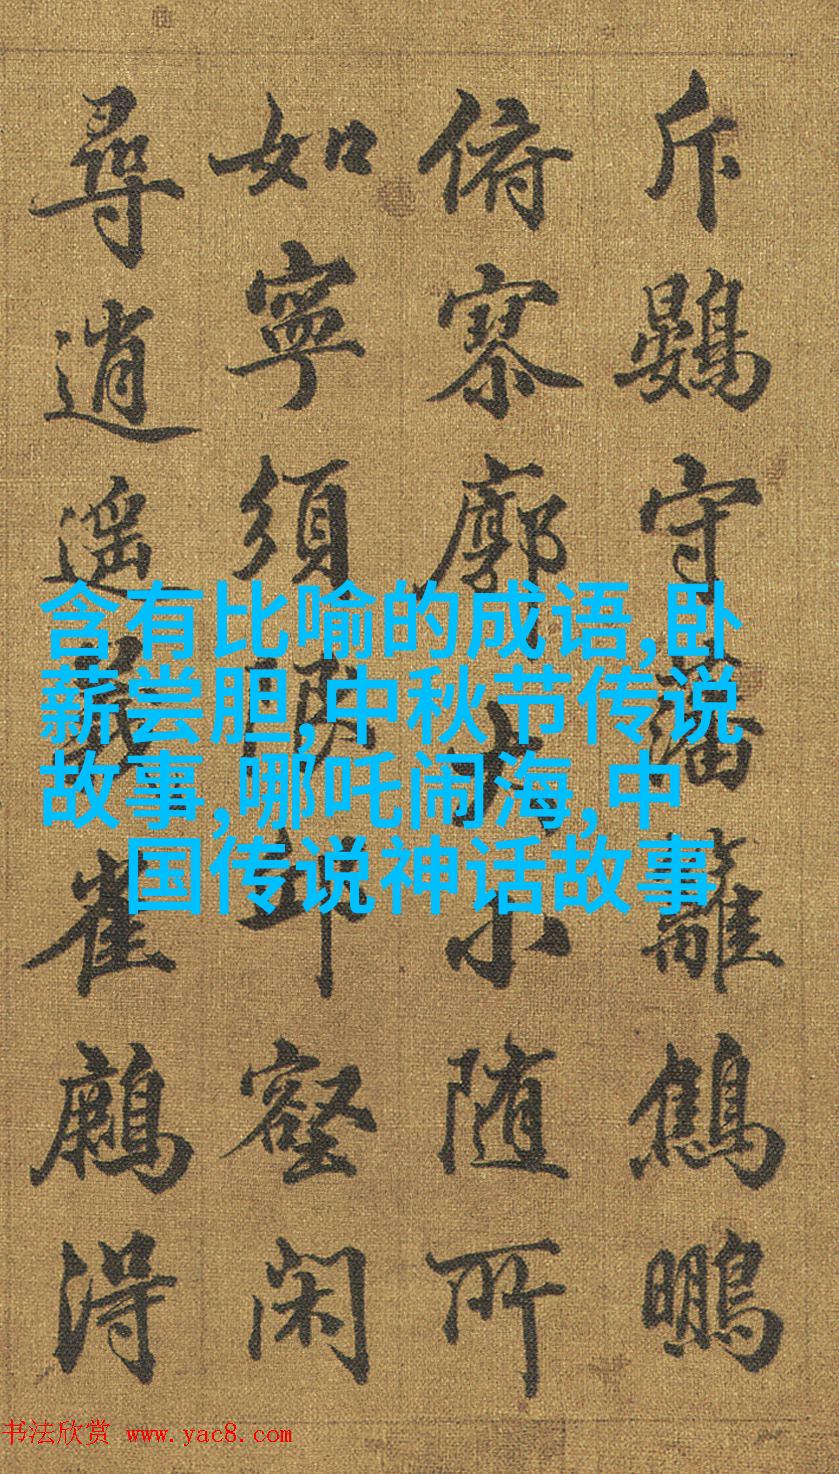 斥鷃守藩籬鷦鵬
俯寥廓大小随所
如寧須限邱壑闲
尋逍遥雀得
含有比喻的成语,卧
薪尝胆,中秋节传说
故事,哪吒闹海,中
国传说神话故事
书法欣赏 www.yac8.com